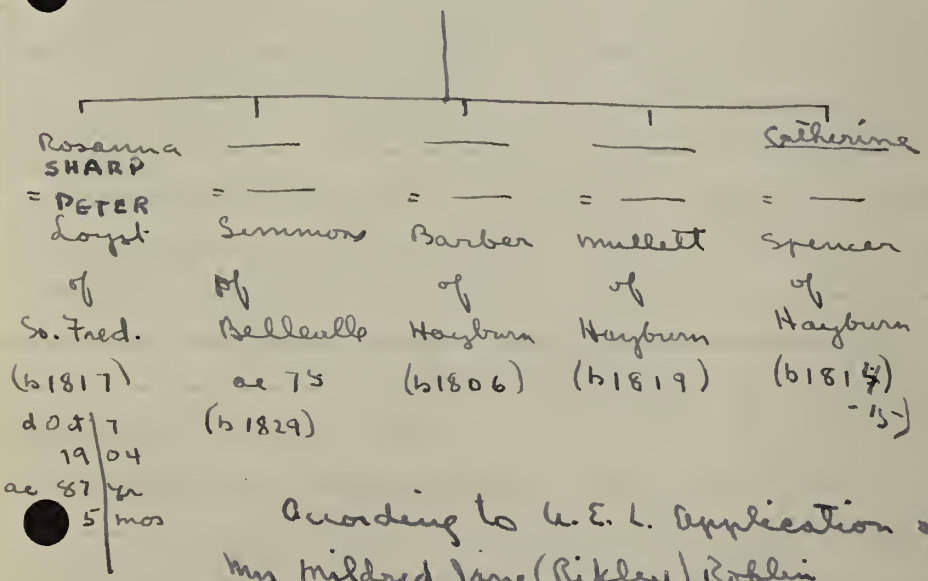 Rosanna
SHARP
= PETER
Loyst
of
So. Fred.
(b 1817)
d Oct 7
19 04
ae 87 yr
5 mos
—
= —
Simmons
of
Belleville
ae 75
(b 1829)
—
= —
Barber
of
Hayburn
(b 1806)
—
= —
Mullett
of
Hayburn
(b 1819)
Catherine
= —
Spencer
of
Hayburn
(b 1814
- 15-)
According to U. E. L. Application
Mrs Mildred Jane (Rikley) Roblin